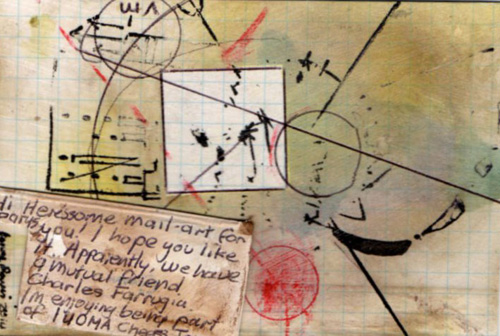 Hi Heressome mail-art for
you! I hope you like
it. Apparently, we have
a mutual friend
Charles Farrugia.
I'm enjoying being part
of IUOMA